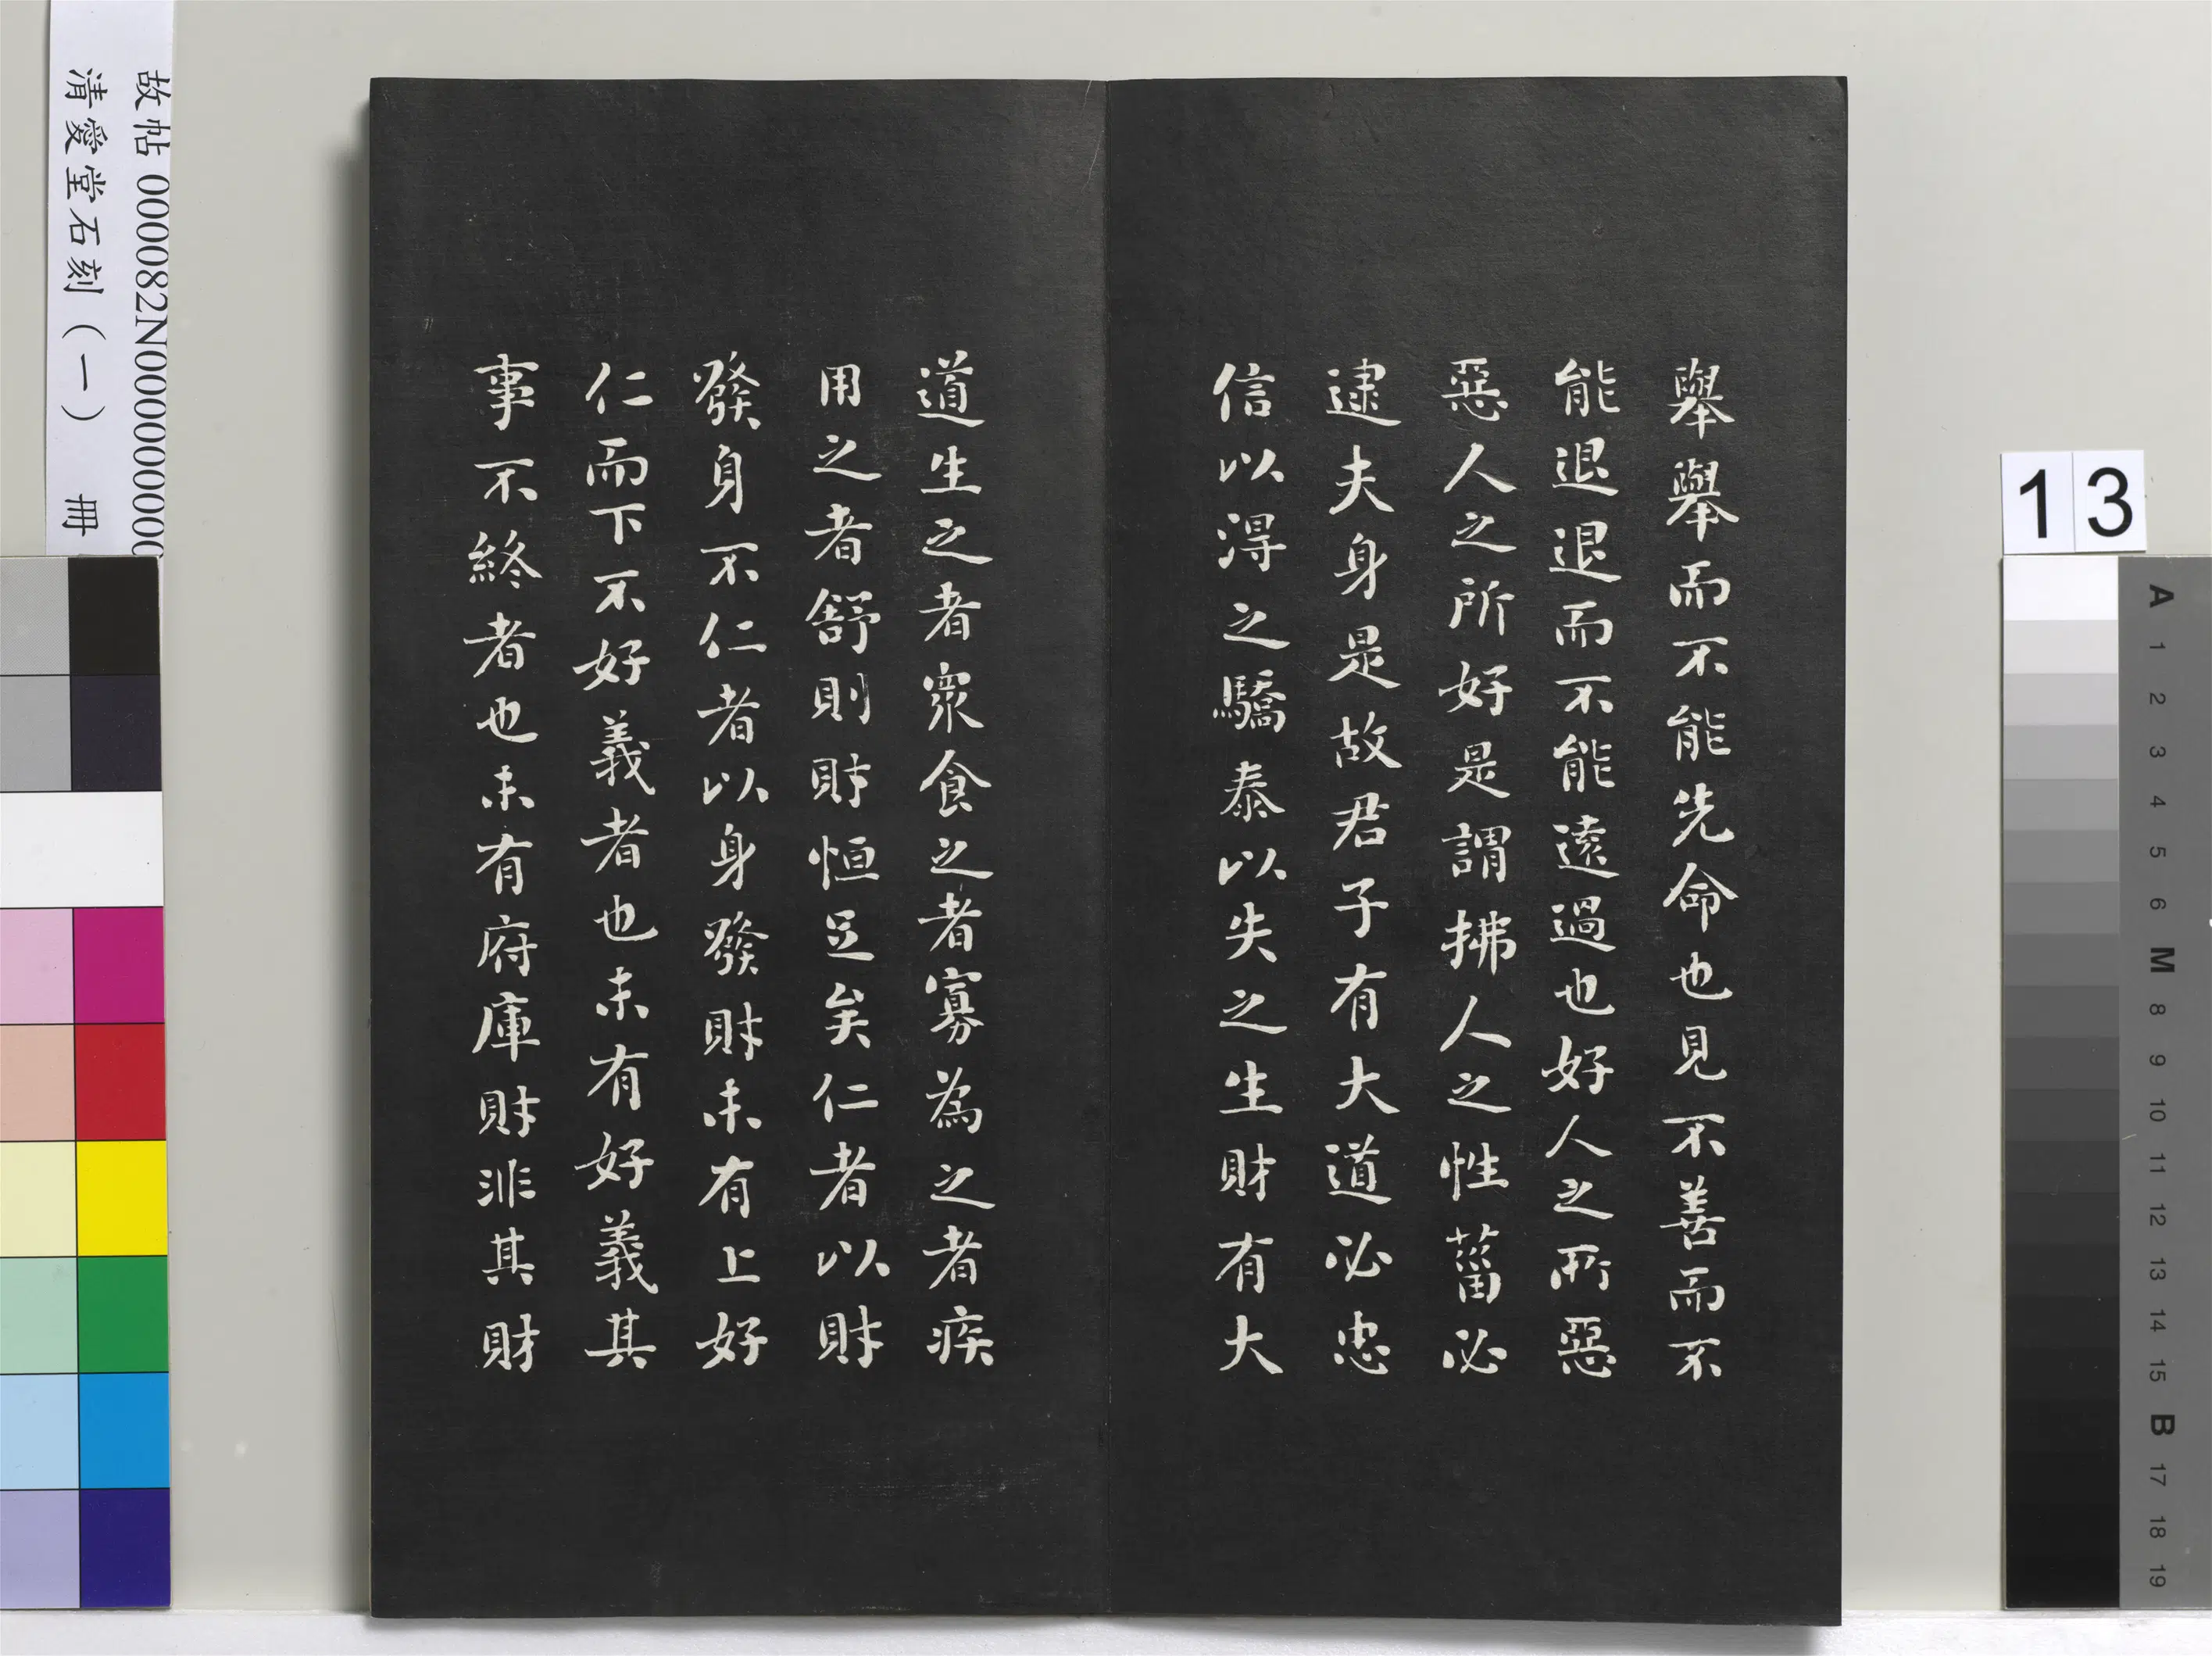 故帖 000082N000000000
清愛堂石刻（一） 冊
13
舉舉而不能先命也見不善而不
能退退而不能遠過也好人之所惡
惡人之所好是謂拂人之性菑必
逮夫身是故君子有大道必忠
信以得之驕泰以失之生財有大
道生之者衆食之者寡為之者疾
用之者舒則財恒足矣仁者以財
發身不仁者以身發財未有上好
仁而下不好義者也未有好義其
事不終者也未有府庫財非其財
A 1 2 3 4 5 6 M 8 9 10 11 12 13 14 15 B 17 18 19